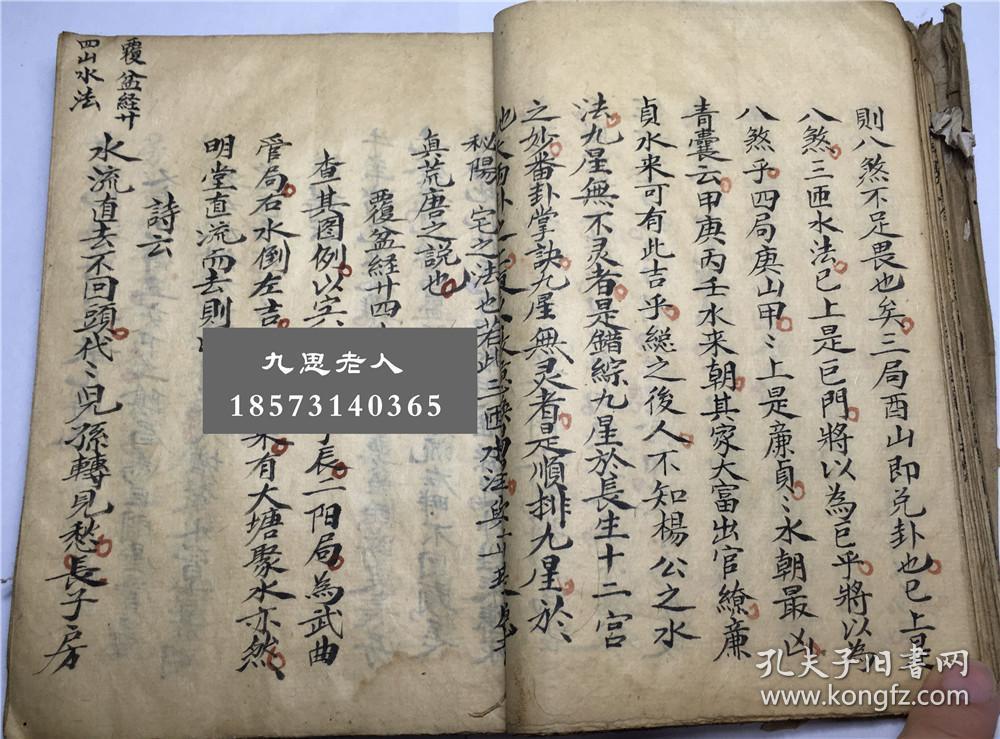 則八煞不足畏也矣三局酉山即兑卦也巳上是
八煞三匝水法巳上是巨門將以為巨乎將以為
八煞乎四局庚山甲〻上是廉貞〻水朝最凶
青囊云甲庚丙壬水来朝其家大富出官繚廉
貞水来可有此吉乎縂之後人不知楊公之水
法九星無不灵者是錯綜九星於長生十二宫
之妙番卦掌訣九星無灵者是順排九星於、
也
秘陽宅之法也若此二
真荒唐之説也
覆盆経廿四
查其图例以
辰二阳局為武曲
管局右水倒左吉
有大塘聚水亦然、
明堂直流而去則
詩云
水流直去不回頭代〻児孫轉見愁長子房
覆盆経廿
四山水法
九思老人
18573140365
孔夫子旧书网
www.kongfz.com